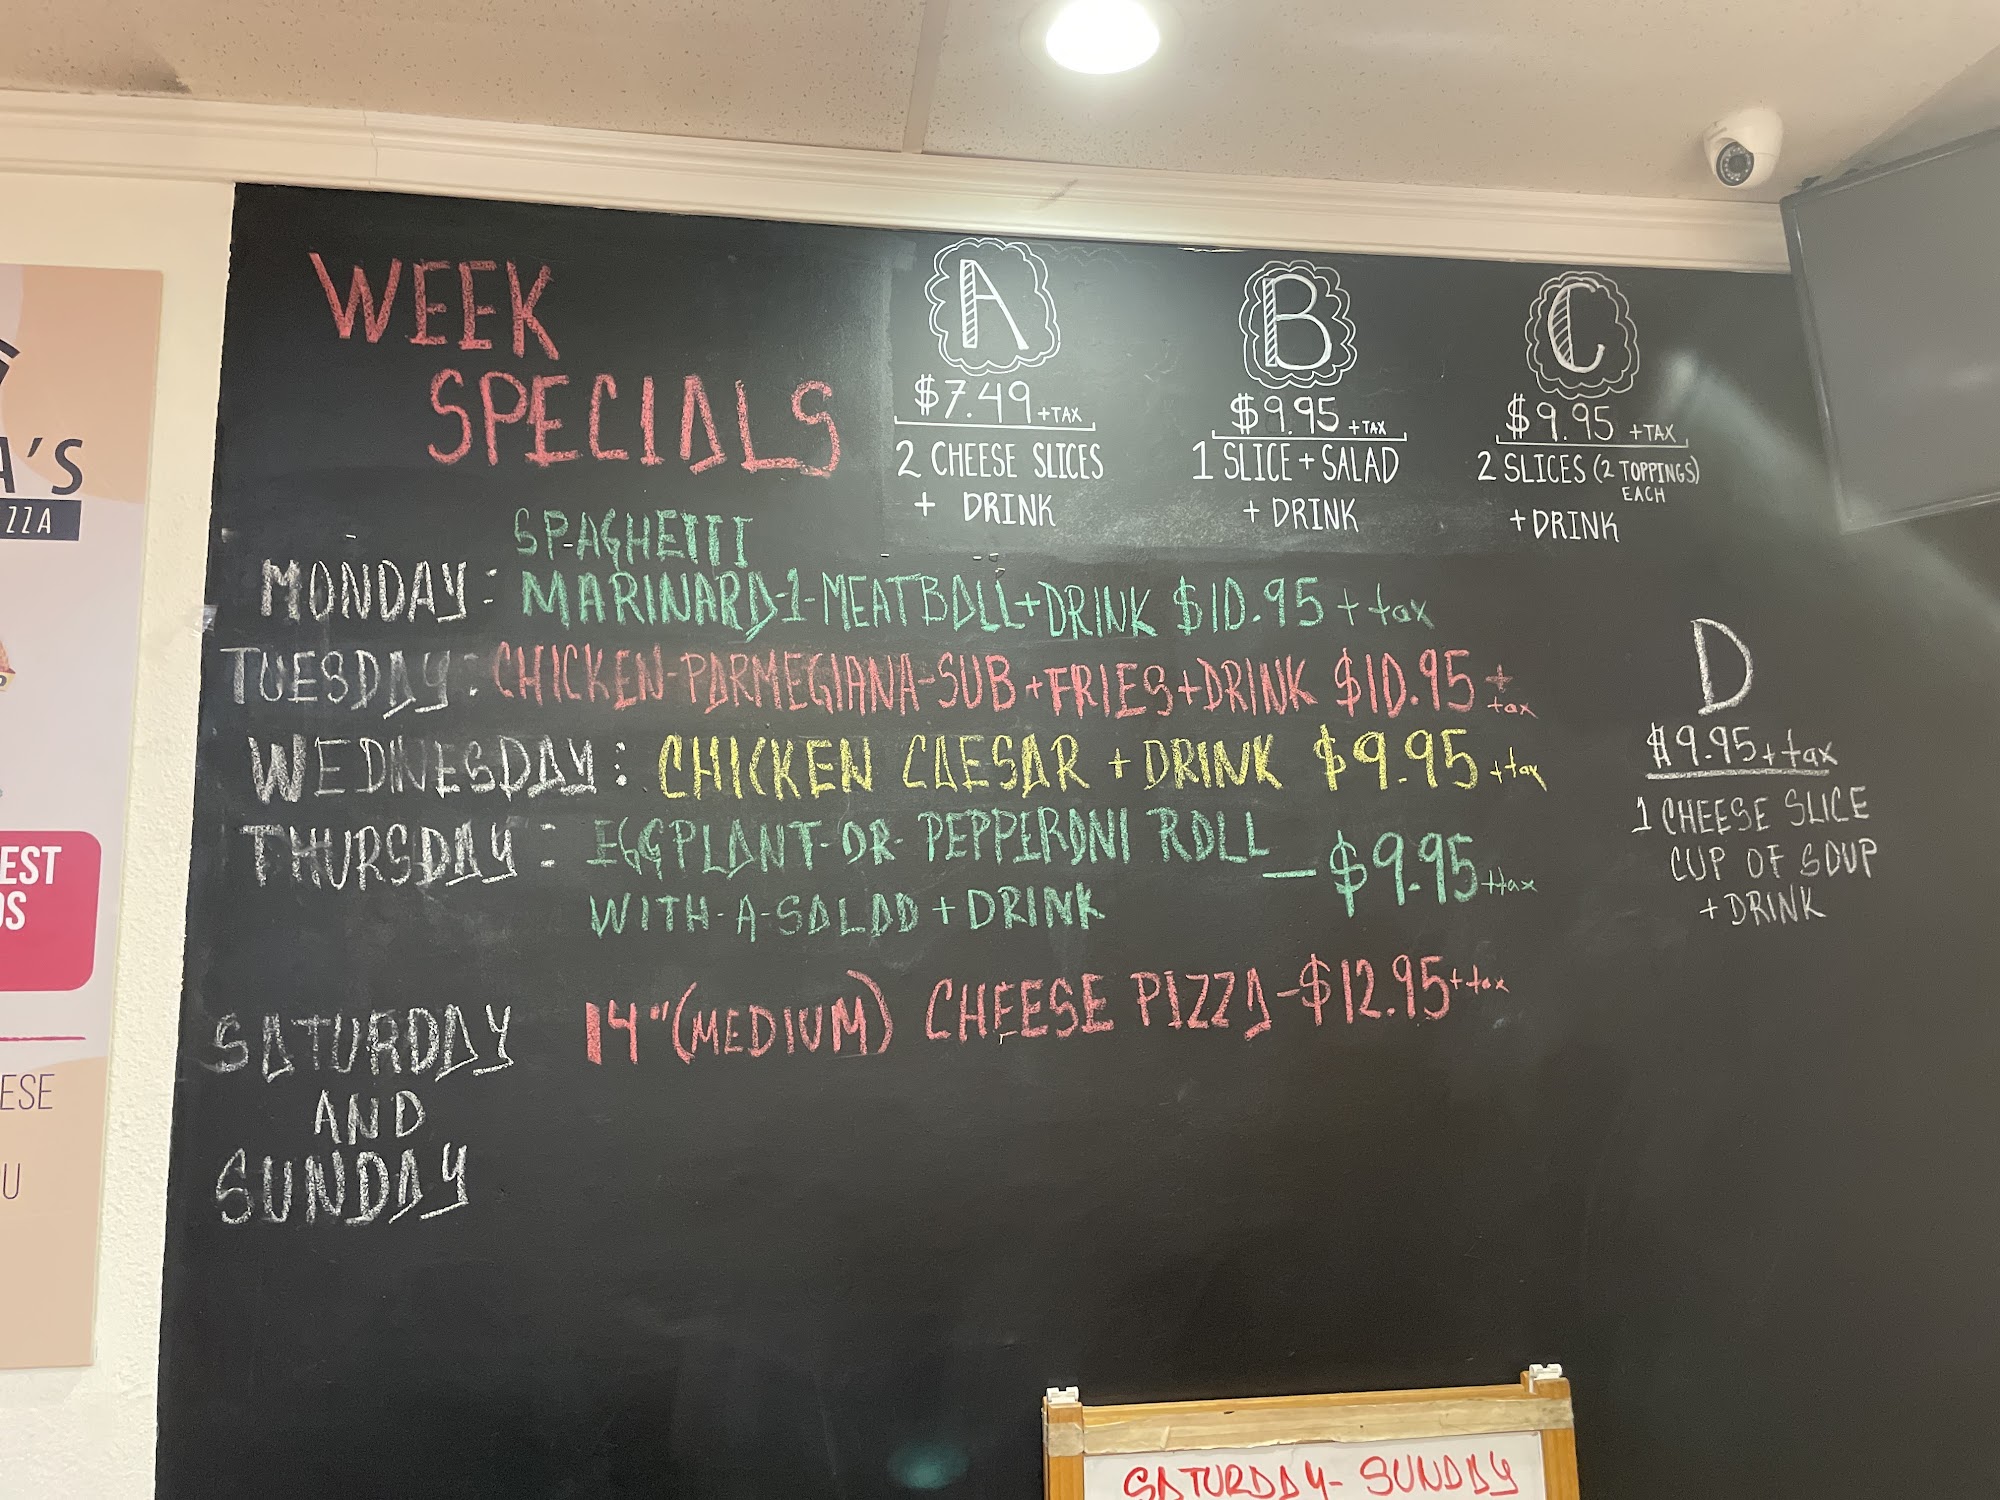 WEEK
SPECIALS
A
$7.49 +TAX
2 CHEESE SLICES
+ DRINK
B
$9.95 +TAX
1 SLICE + SALAD
+ DRINK
C
$9.95 +TAX
2 SLICES (2 TOPPINGS)
EACH
+ DRINK
SPAGHETTI
MONDAY: MARINARA-1-MEATBALL+DRINK $10.95 + tax
TUESDAY: CHICKEN-PARMEGIANA-SUB+FRIES+DRINK $10.95 + tax
WEDNESDAY: CHICKEN CAESAR + DRINK $9.95 +tax
THURSDAY: EGGPLANT-OR-PEPPERONI ROLL
WITH-A-SALAD + DRINK — $9.95 +tax
SATURDAY 14"(MEDIUM) CHEESE PIZZA-$12.95 +tax
AND
SUNDAY
D
$9.95 + tax
1 CHEESE SLICE
CUP OF SOUP
+ DRINK
A'S
ZZA
EST
OS
ESE
U
SATURDAY- SUNDAY